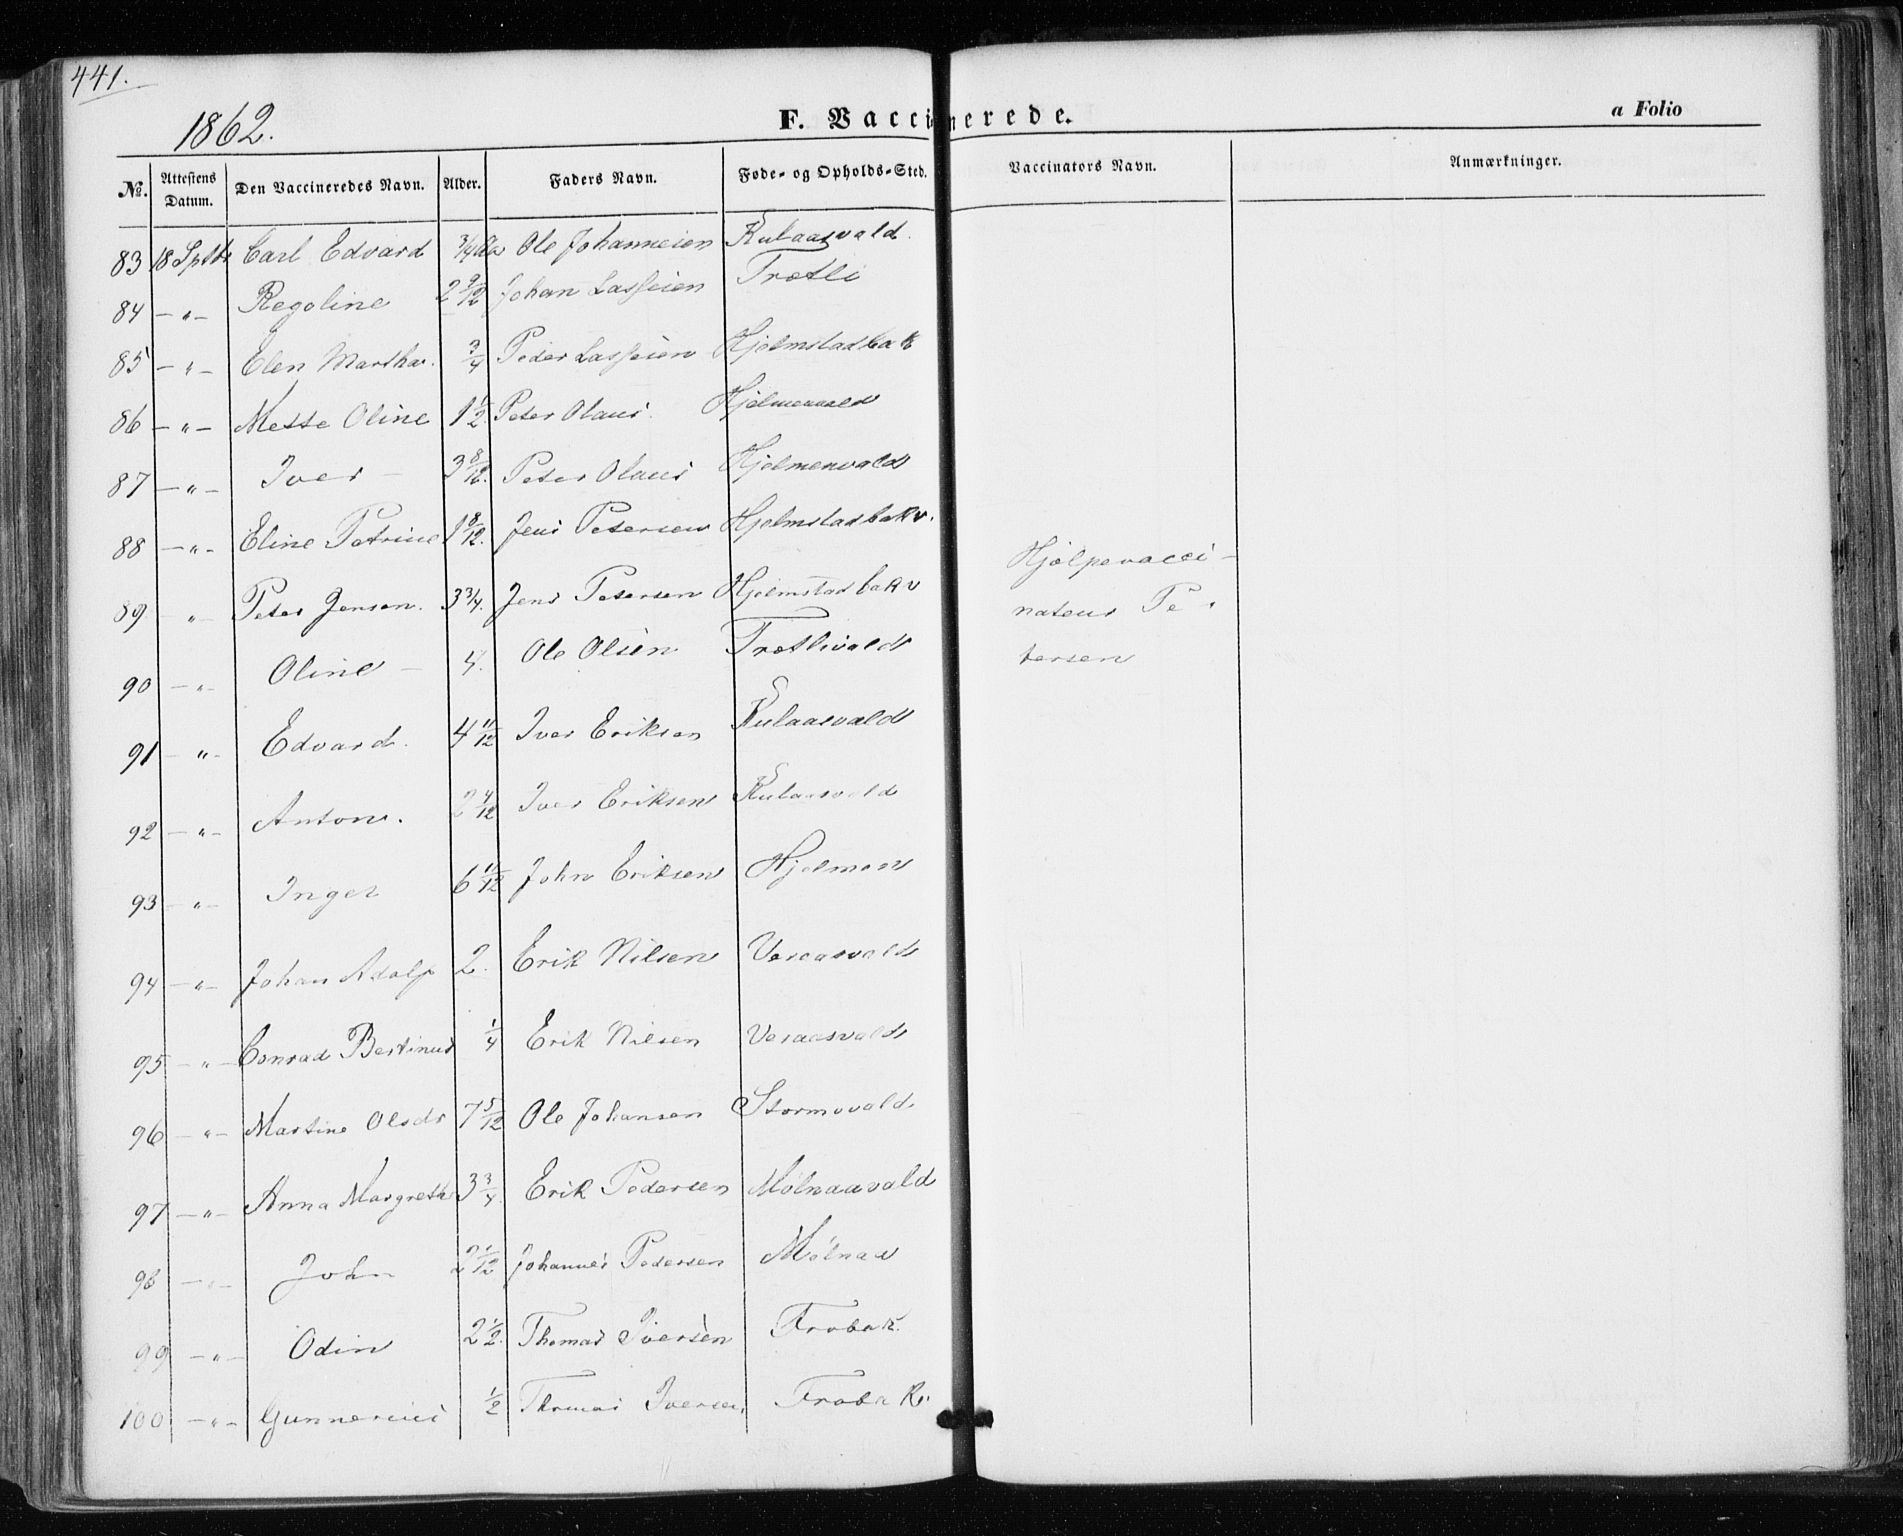 441.
1862.
F. Vaccinerede.
a Folio
No. Attestens Datum. Den Vaccineredes Navn. Alder. Faders Navn. Føde- og Opholds-Sted. Vaccinators Navn. Anmærkninger.
83 18 Sptbr Carl Edvard 3/4 Ole Johannesen Kulaasvald.
84 - " - Regoline 2 9/12 Johan Lassesen Trætli
85 - " - Elen Martha. 3/4 Peder Lassesen Hjelmstadbak
86 - " - Mette Oline 1 1/2 Peter Olaus. Hjelmenvald
87 - " - Iver - 3 8/12. Peter Olaus Hjelmenvald
88 - " - Eline Petrine 1 8/12. Jens Petersen Hjelmstadbakv.
89 " Peter Jensen. 3 3/4. Jens Petersen Hjelmstadbakv
Hjelpevacci-
nateur Pe-
tersen
90 - " Oline - 4. Ole Olsen Trætlivald
91 - " - Edvard. 4 11/12 Iver Eriksen Kulaasvald
92 - " - Anton. 2 4/12 Iver Eriksen Kulaasvald
93 - " - Inger 6 11/12 John Eriksen Hjelmen
94 - " - Johan Adolf 2. Erik Nilsen Veraasvald
95 - " - Conrad Bertinus 1/4 Erik Nilsen Veraasvald
96 - " - Martine Olsdr 7 5/12 Ole Johansen Stormovald
97 - " - Anna Margreth 3 3/4. Erik Pedersen Molnaavald
98 - " - John 2 1/12 Johannes Pedersen Molnaa
99 - " - Odin 2 1/2. Thomas Iversen Frobak
100 - " - Gunnerius 1/2 Thomas Iversen, Frobak